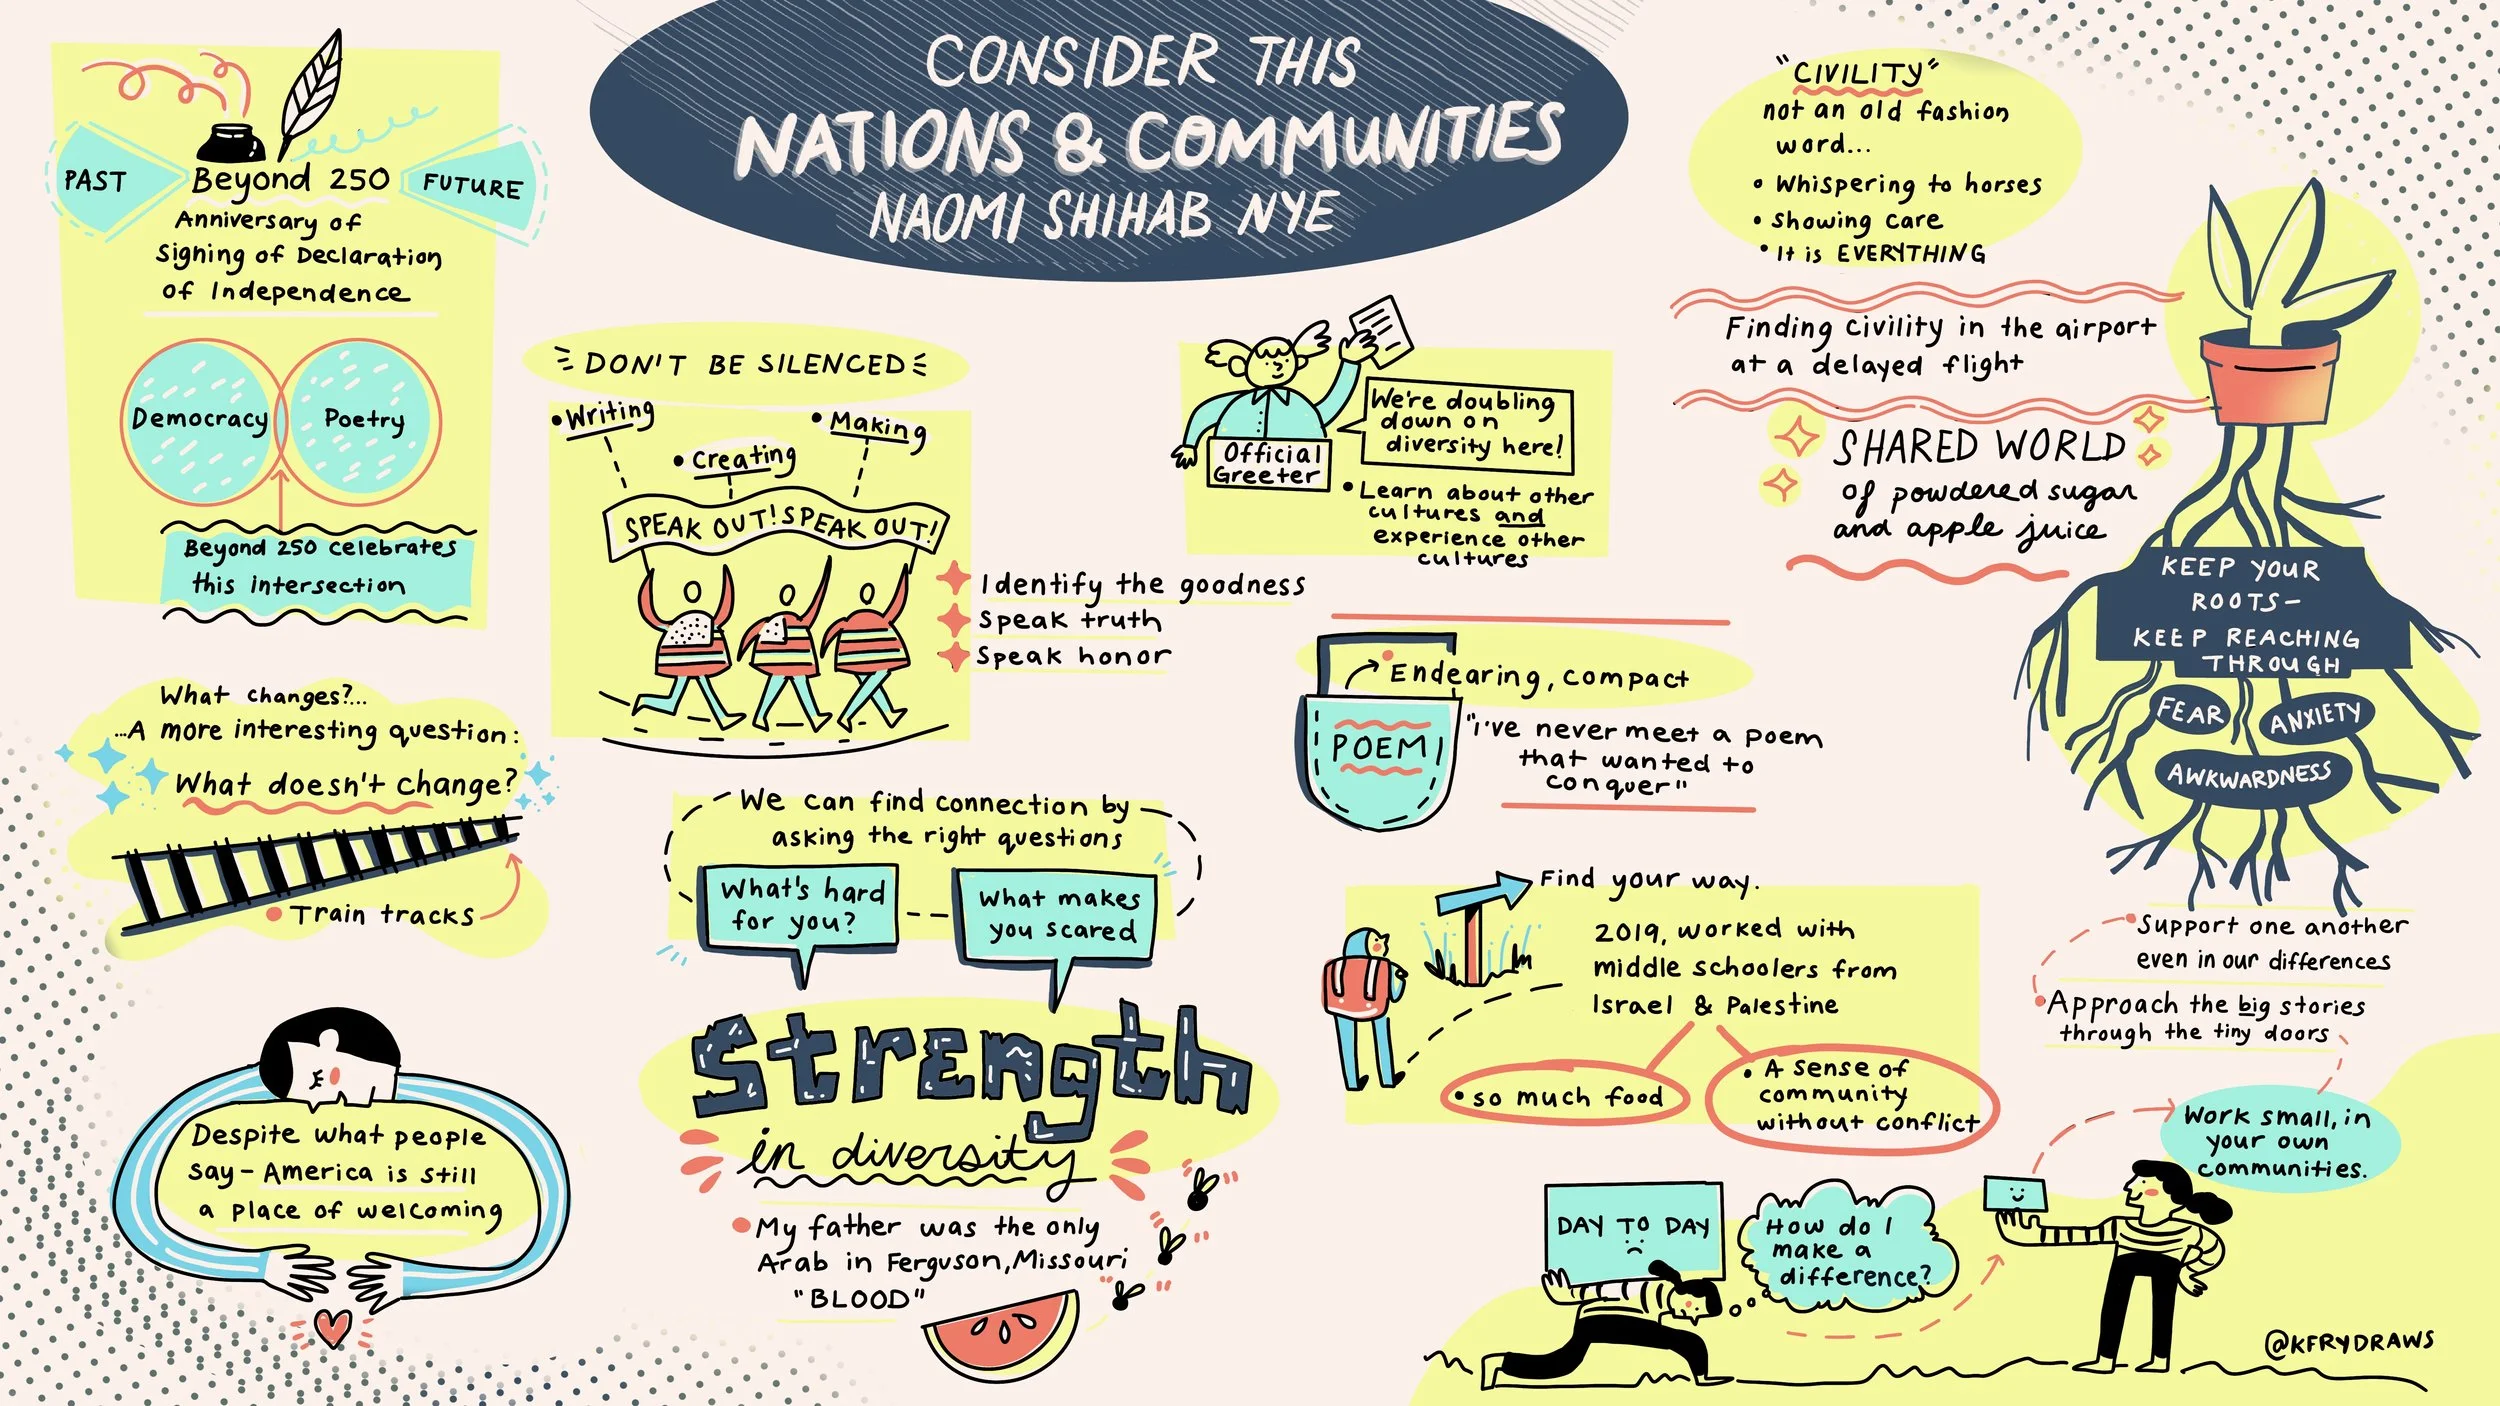 CONSIDER THIS
NATIONS & COMMUNITIES
NAOMI SHIHAB NYE
PAST
Beyond 250
FUTURE
Anniversary of
Signing of Declaration
of Independence
Democracy
Poetry
Beyond 250 celebrates
this intersection
What changes?...
...A more interesting question:
What doesn't change?
Train tracks
Despite what people
say - America is still
a place of welcoming
DON'T BE SILENCED
• Writing
• Creating
• Making
SPEAK OUT! SPEAK OUT!
Identify the goodness
Speak truth
Speak honor
We can find connection by
asking the right questions
What's hard
for you?
What makes
you scared
Strength
in diversity
My father was the only
Arab in Ferguson, Missouri
"BLOOD"
Official
Greeter
We're doubling
down on
diversity here!
• Learn about other
cultures and
experience other
cultures
Endearing, compact
POEM
"i've never meet a poem
that wanted to
conquer"
Find your way.
2019, worked with
middle schoolers from
Israel & Palestine
• so much food
• A sense of
community
without conflict
DAY TO DAY
How do I
make a
difference?
"CIVILITY"
not an old fashion
word...
• Whispering to horses
• showing care
• It is EVERYTHING
Finding civility in the airport
at a delayed flight
SHARED WORLD
of powdered sugar
and apple juice
KEEP YOUR
ROOTS-
KEEP REACHING
THROUGH
FEAR
ANXIETY
AWKWARDNESS
Support one another
even in our differences
Approach the big stories
through the tiny doors
Work small, in
your own
communities.
@KFRYDRAWS